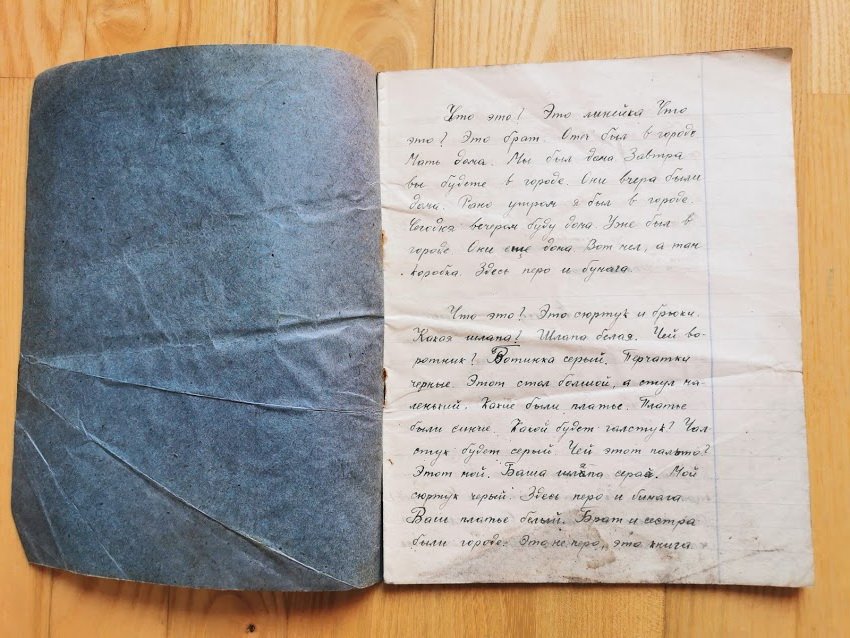 Что это? Это линейка Что
это? Это брат. Отц был в городе
Мать дома. Мы был дома Завтра
вы будете в городе. Они вчера были
дома. Рано утром я был в городе.
Сегодня вечером буду дома. Уже был в
городе. Они еще дома Вот мел, а там
коробка. Здесь перо и бумага.
Что это? Это сюртук и брюки.
Какая шлапа? Шлапа белая. Чей во-
ротник? Вотинка серый. Перчатки
черные. Этот стол болшой, а стул ма-
ленький. Какие были платье. Платье
были синие. Какой будет галстук? Гал
стук будет серый. Чей этот пальто?
Этот мой. Ваша шлапа серая. Мой
сюртук черый. Здесь перо и бумага
Ваш платье белый. Брат и сестра
были городе. Это не перо, это книга.